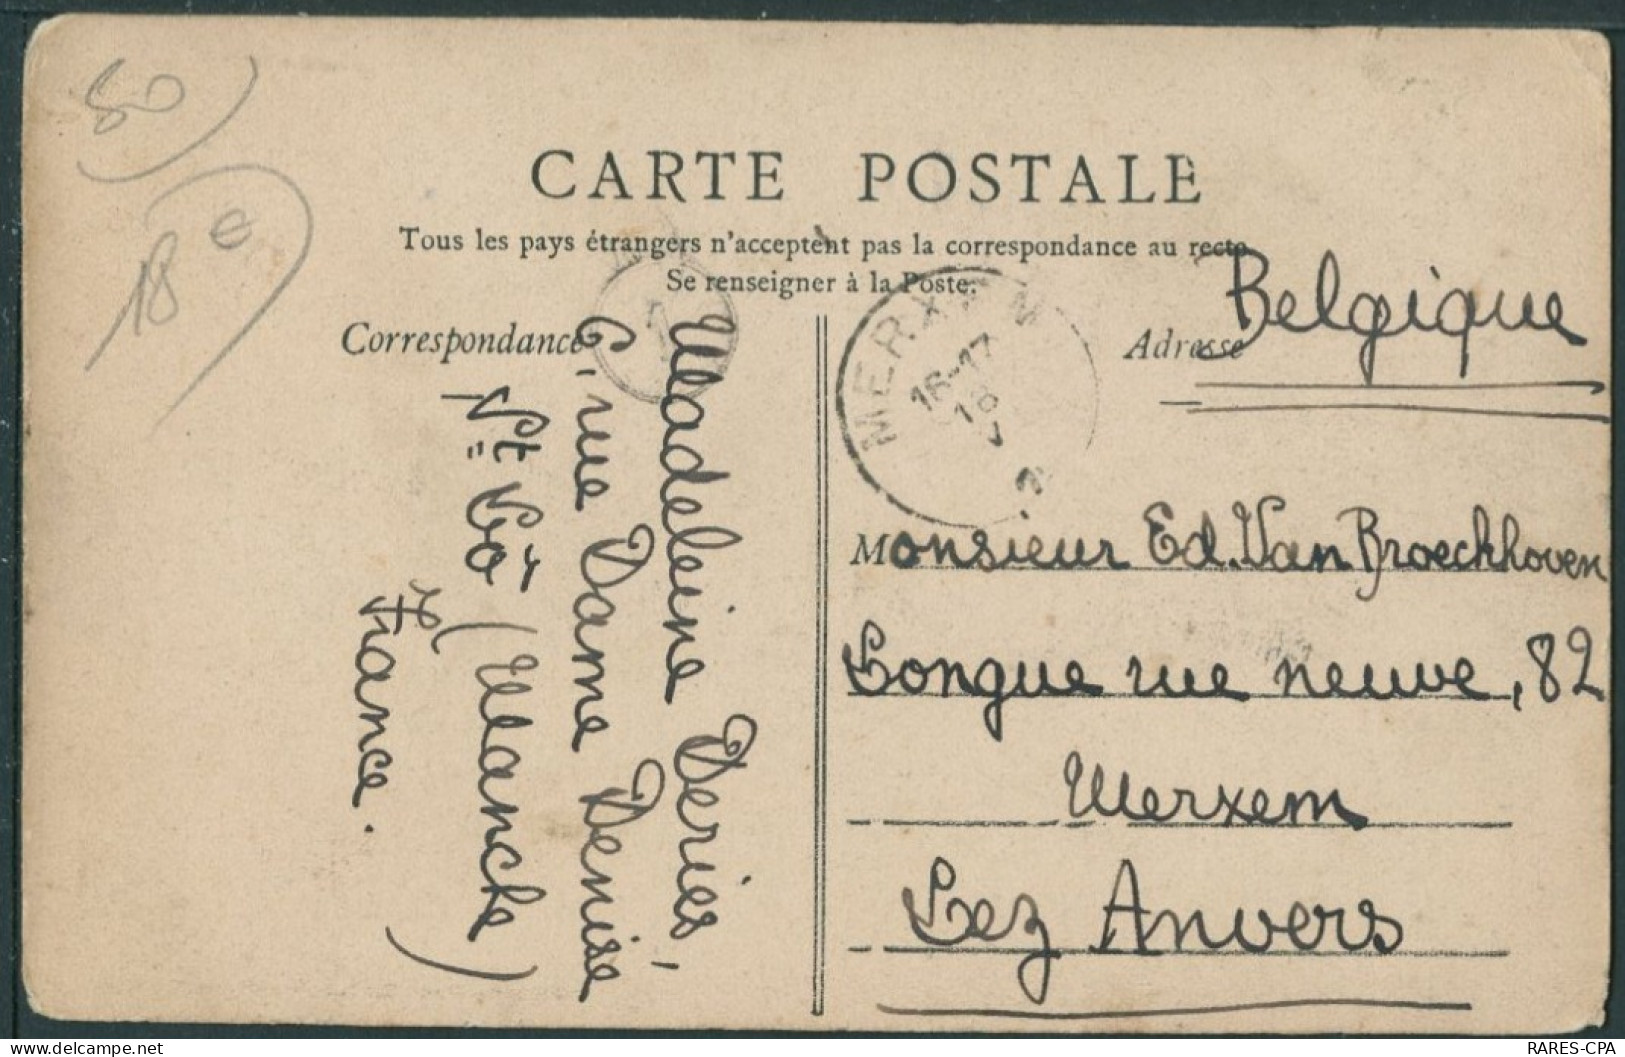 80
18 €
CARTE POSTALE
Tous les pays étrangers n'acceptent pas la correspondance au recto
Se renseigner à la Poste.
Correspondance
Adresse
Belgique
MERXEM
16-17
18
Madeleine Deries,
6, rue Dame Denise
St Lô (Manche)
France.
Monsieur Ed. Van Broeckhoven
Longue rue neuve, 82
Merxem
Lez Anvers
www.delcampe.net
RARES-CPA